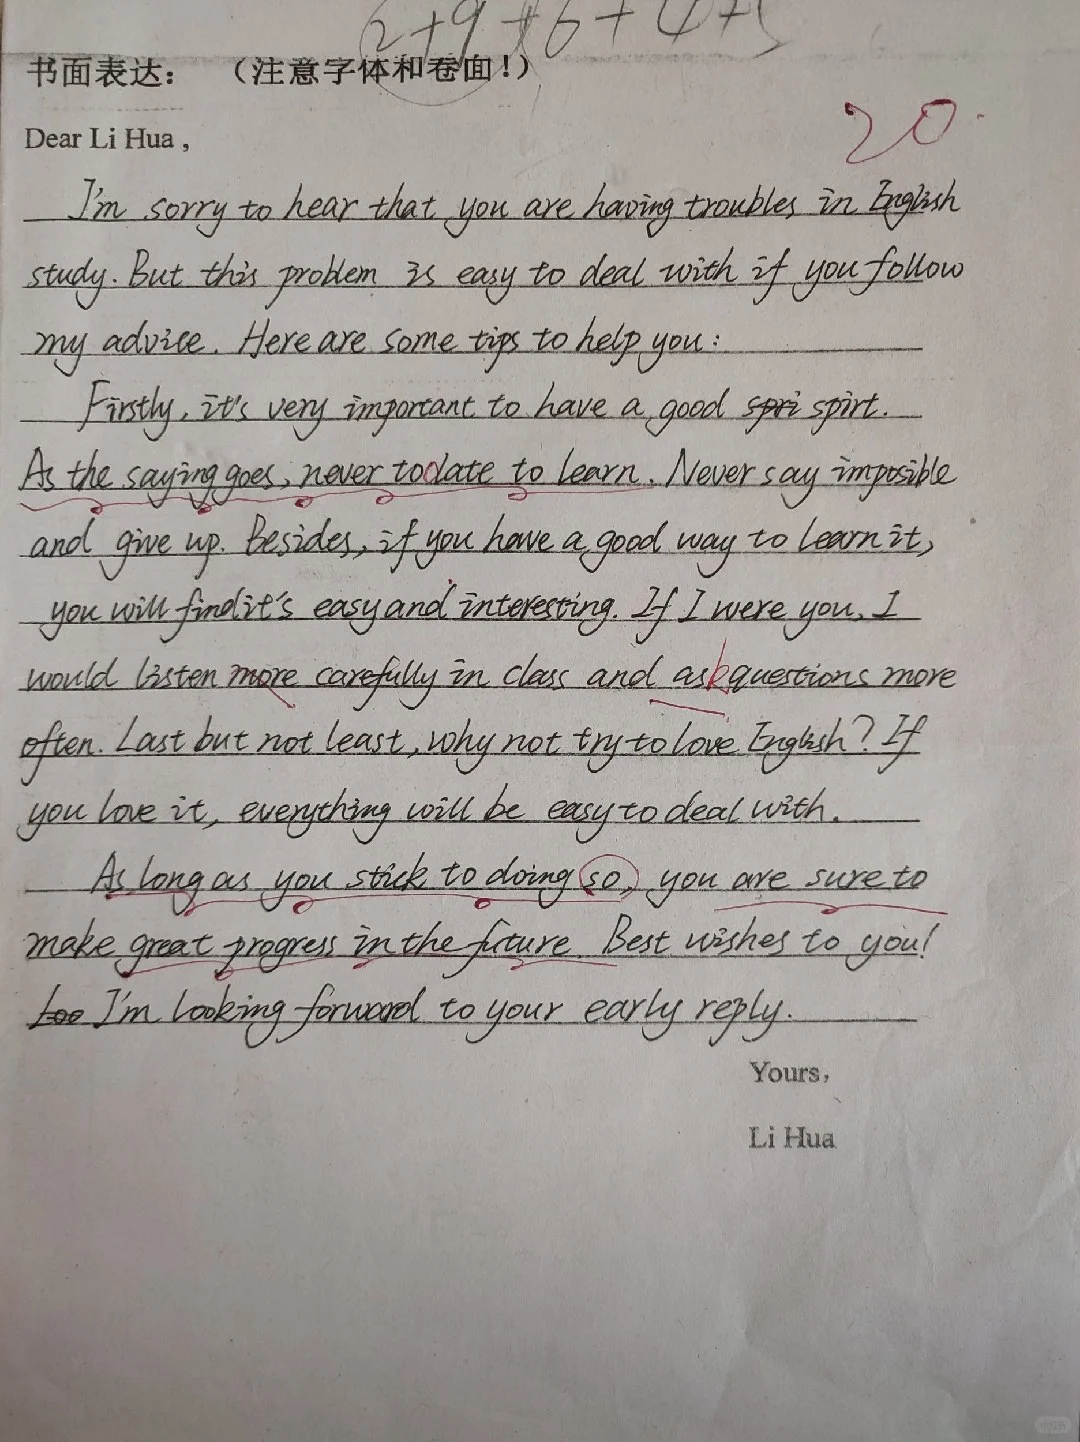 2+9+6+4+5
书面表达： （注意字体和卷面！）
20.
Dear Li Hua ,
I'm sorry to hear that you are having troubles in English
study. But this problem is easy to deal with if you follow
my advice. Here are some tips to help you:
Firstly, it's very important to have a good spri spirt.
As the saying goes, never too late to learn. Never say imposible
and give up. Besides, if you have a good way to learn it,
you will find it's easy and interesting. If I were you, I
would listen more carefully in class and ask questions more
often. Last but not least, why not try to love English? If
you love it, everything will be easy to deal with.
As long as you stick to doing so, you are sure to
make great progress in the future. Best wishes to you!
Loo I'm looking forward to your early reply.
Yours,
Li Hua